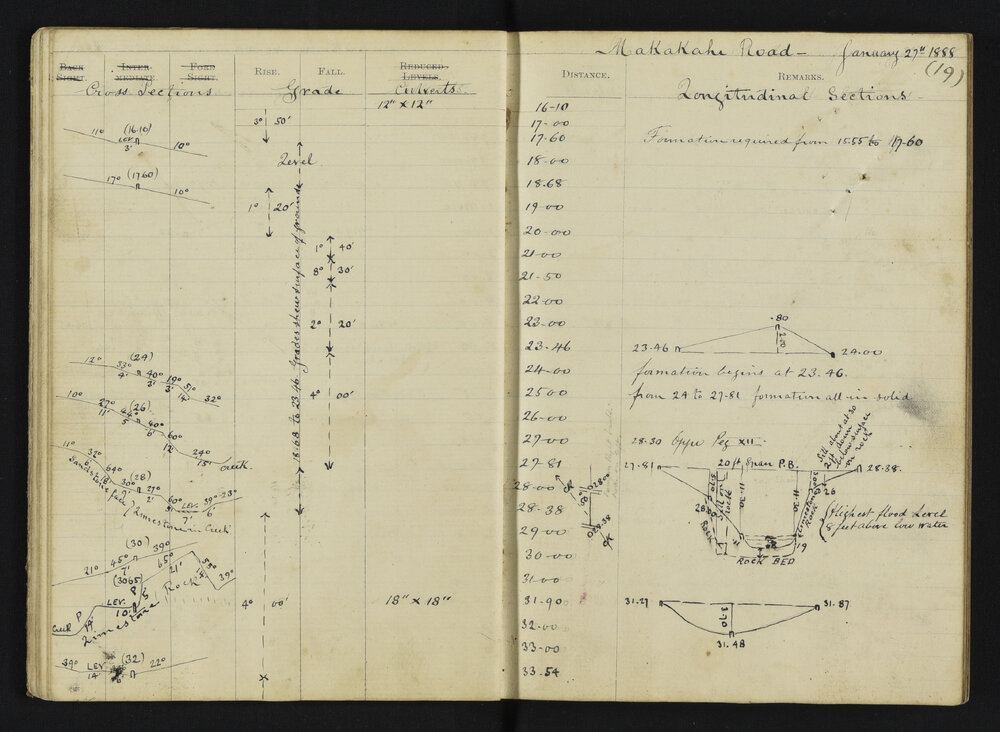 Makakahi Road - January 27th 1888
(19)
BACK SIGHT. INTER-MEDIATE. FORD SIGHT. RISE. FALL. REDUCED LEVELS. DISTANCE. REMARKS.
Cross Sections Grade Culverts Longitudinal Sections
12" x 12" 16-10
3° 50' 17-00
11° (16.10) LEV. 3' 10° 17-60 Formation required from 15.55 to 17-60
Level 18-00
17° (1760) 10° 18-68
1° 20' 19-00
20-00
1° 40' 21-00
8° 30' 21-50
22-00
2° 20' 23-00 .80
12° (24) 33° 4' 40° 3' 19° 3' 51° 14' 32° 23-46 23.46 24.00
18.68 to 23.46 Grades shew surface of ground
24-00 formation begins at 23.46.
4° 00' 25-00 from 24 to 27-81 formation all in solid
10° 27° 11' (26) 44° 5' 40° 6' 60° 12' 24° 15' Creek. 26-00
27-00 28.30 Oppo Peg XII
Sill about at 30
2 ft down
below surface
on rock
27-81 27.81 20 ft Span P.B. 28.38.
11° 32° 64° (28) 30° 27° 2' 60° LEV. 7' 39° 6' 23°
Sandstone
Limestone in Creek
28-00 28-38
Sill on rock
11.30
11.30
Limestone Rock
26
Rock
19
ROCK BED
Highest flood Level
8 feet above low water
29-00
(30) 39° 21° 45° 7' 65° 21' 39° 30-00
(3065) 31-00
LEV. 10' P Creek 14' Limestone Rock
4° 00' 18" x 18" 31-90 31.27 31.87
3.70
32-00 31.48
33-00
39° LEV. 14' (32) 6' 22° 33-54